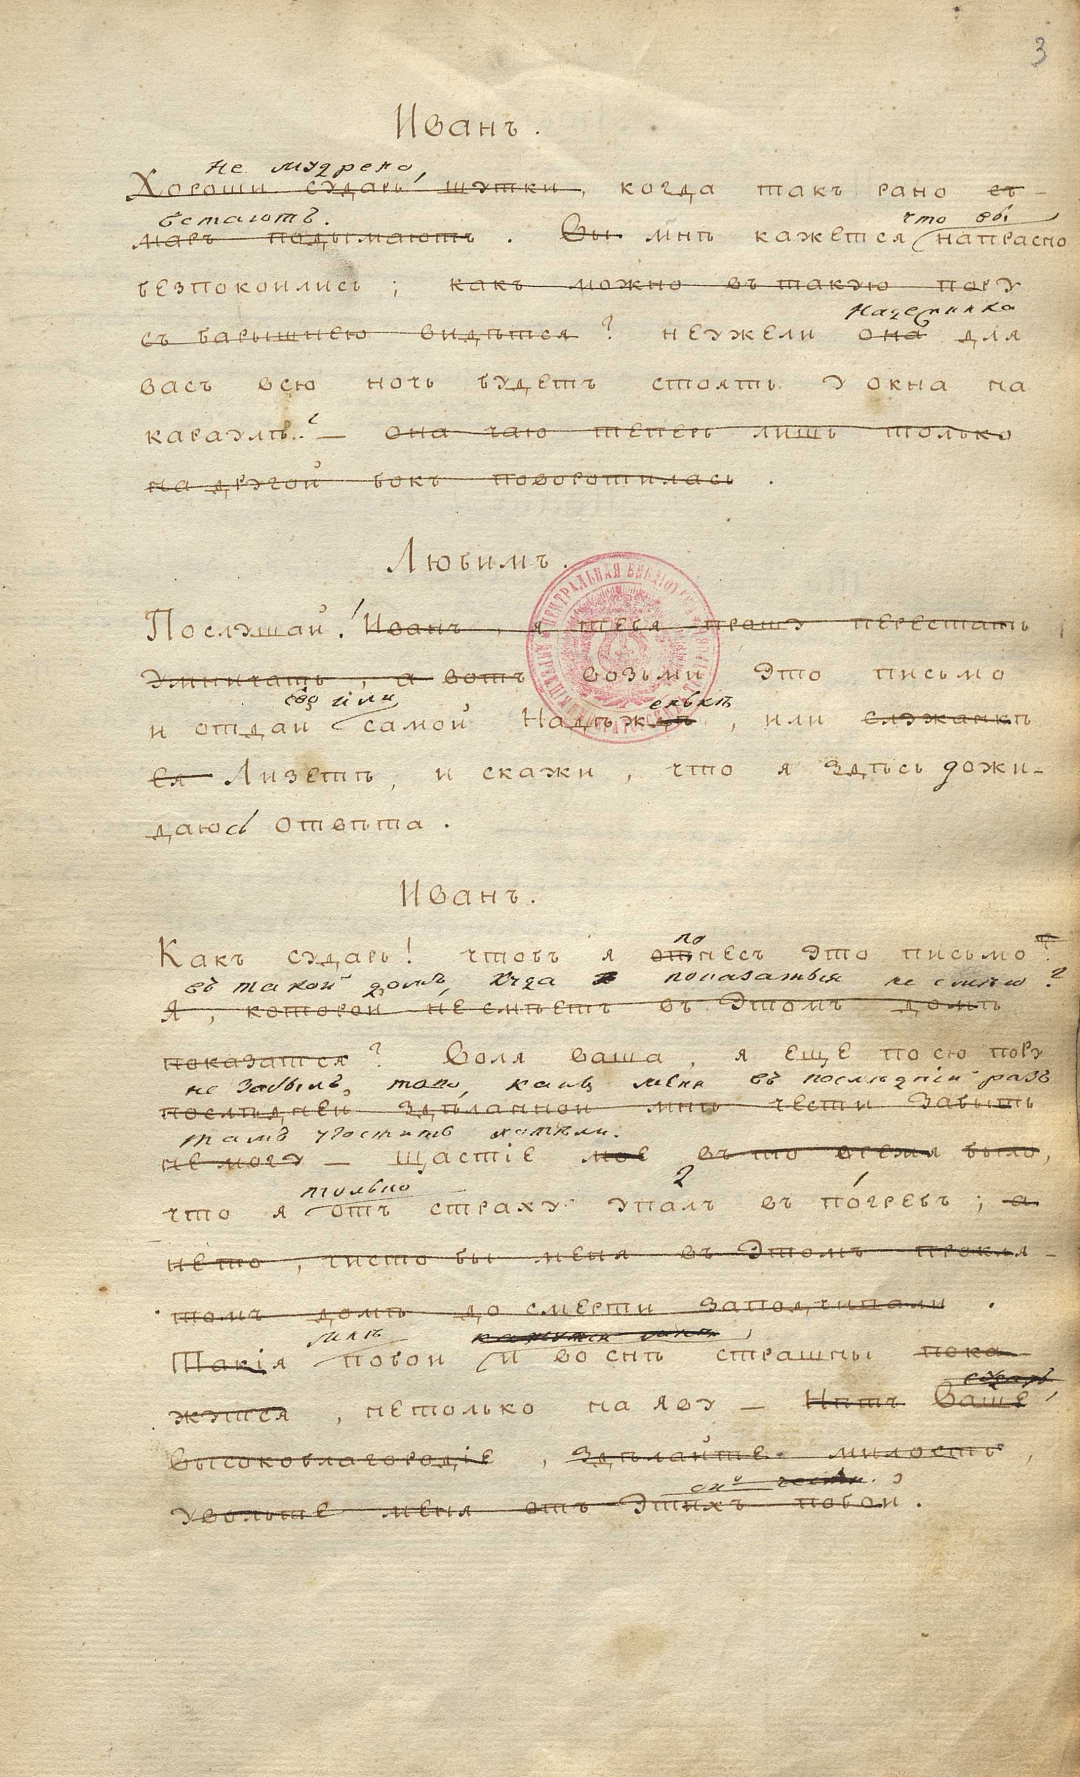 3
Иванъ.
не мудрено,
Хороши сударь шутки, когда такъ рано съ-
встаютъ. что вы
маръ подымаютъ. Вы мнѣ кажется напрасно
безпокоились; какъ можно въ такую пору
Наденька
съ барышнею видѣтся? неужели она для
васъ всю ночь будетъ стоять у окна на
караулѣ? — она чаю теперь лишь только
на другой бокъ поворотилась.
Любимъ.
Послушай! Иванъ, я тебя прошу перестать
умничать, а вотъ возьми это письмо
или енькѣ
и отдай самой Надѣждѣ, или служанкѣ
ея Лизетѣ, и скажи, что я здѣсь дожи-
даюсь отвѣта.
Иванъ.
по
Какъ сударь! чтобъ я отнесъ это письмо?
въ такой домъ, куда я показаться не смѣю?
Я, которой не смѣетъ въ этомъ домѣ
показатся? Воля ваша, я еще по сю пору
не забылъ того, какъ меня въ послѣдній разъ
послѣдней здѣланной мнѣ чести забыть
тамъ угостить хотѣли.
не могу — щастіе мое въ то время было,
только 2 1
что я отъ страху упалъ въ погребъ; а
нето, чисто бы меня въ этомъ прокля-
томъ домѣ до смерти заподчивали.
мнѣ кажутся
Такія побои и во снѣ страшны пока
сударь
жутся, нетолько на яву — Нѣтъ Ваше
высокоблагородіе, здѣлайте милость,
чести.
увольте меня отъ этихъ побои.